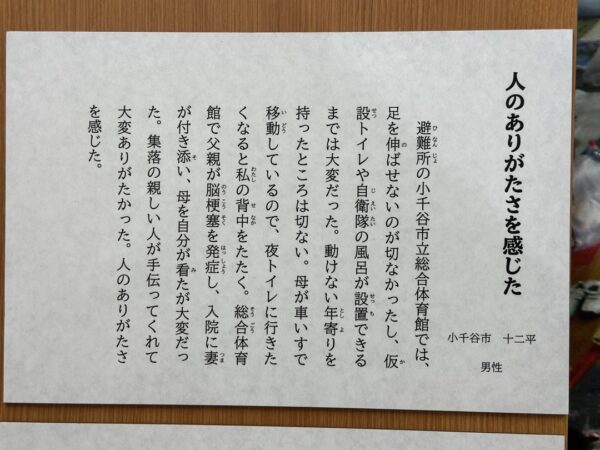 人のありがたさを感じた
小千谷市　十二平
男性
避難所の小千谷市立総合体育館では、
足を伸ばせないのが切なかったし、仮
設トイレや自衛隊の風呂が設置できる
までは大変だった。動けない年寄りを
持ったところは切ない。母が車いすで
移動しているので、夜トイレに行きた
くなると私の背中をたたく。総合体育
館で父親が脳梗塞を発症し、入院に妻
が付き添い、母を自分が看たが大変だっ
た。集落の親しい人が手伝ってくれて
大変ありがたかった。人のありがたさ
を感じた。